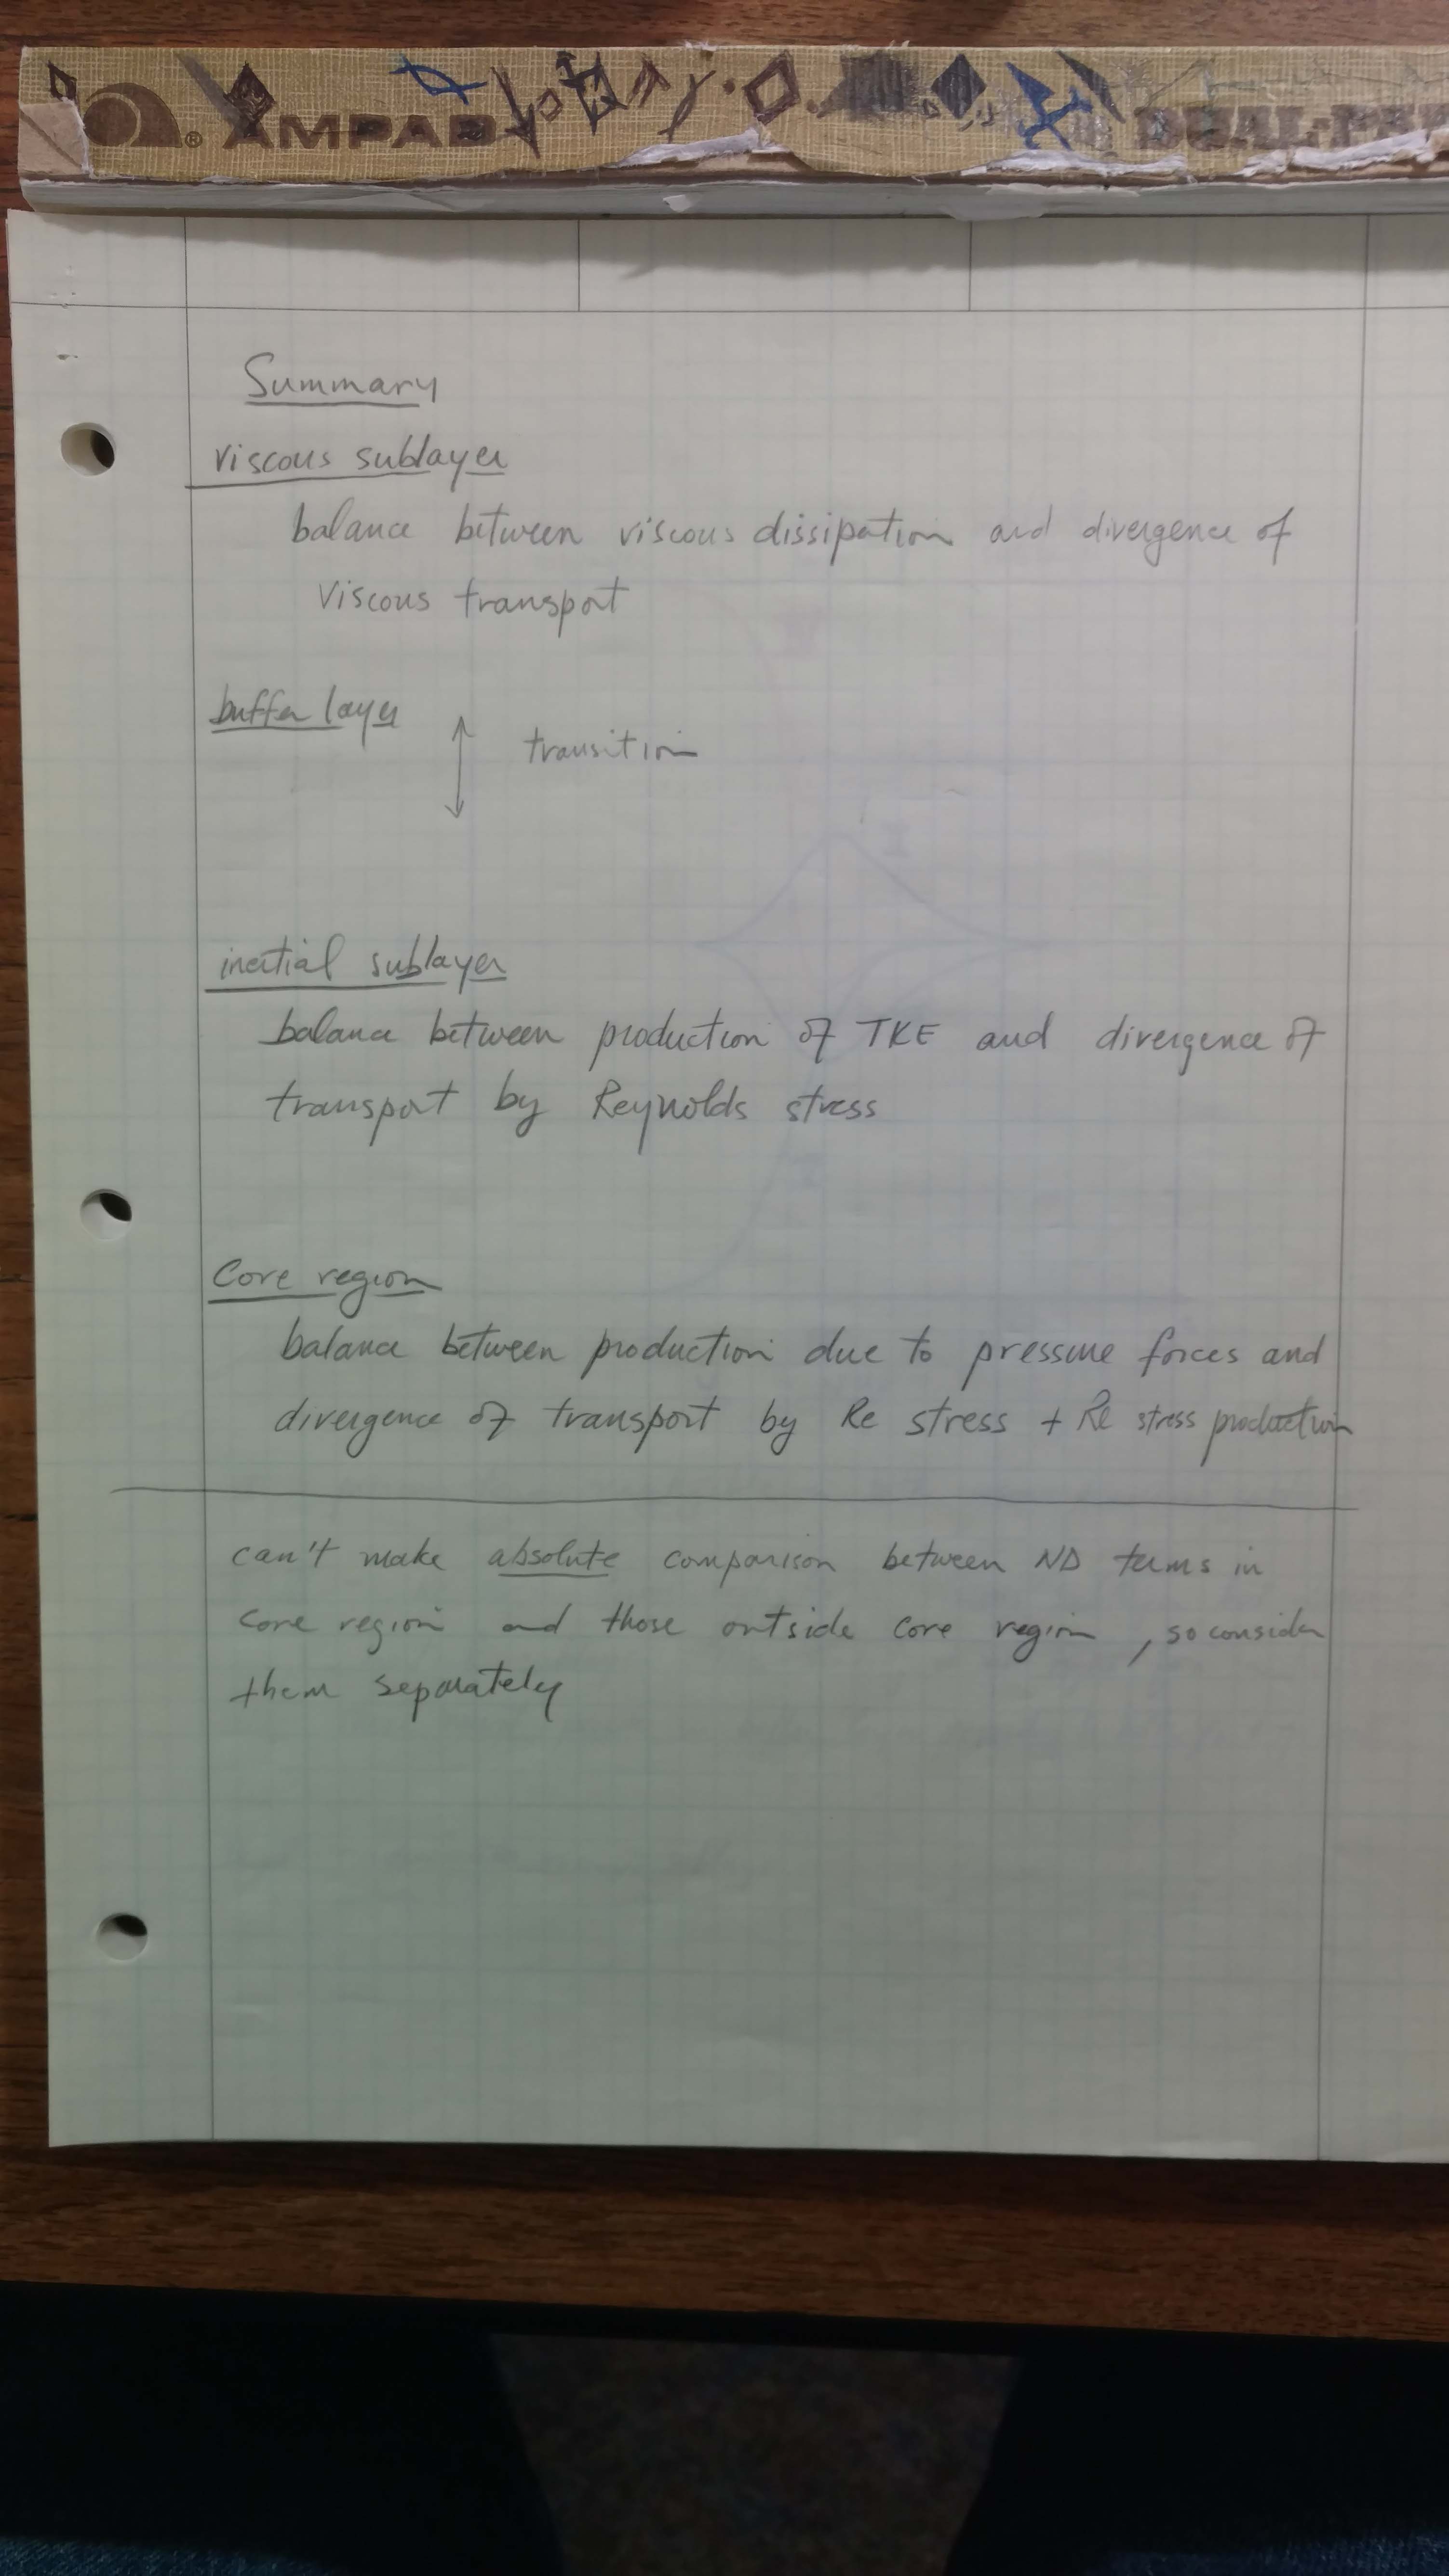 ® AMPAD DUAL-PA
Summary
viscous sublayer
balance between viscous dissipation and divergence of
viscous transport
buffer layer
transition
inertial sublayer
balance between production of TKE and divergence of
transport by Reynolds stress
Core region
balance between production due to pressure forces and
divergence of transport by Re stress + Re stress production
can't make absolute comparison between ND terms in
core region and those outside core region, so consider
them separately